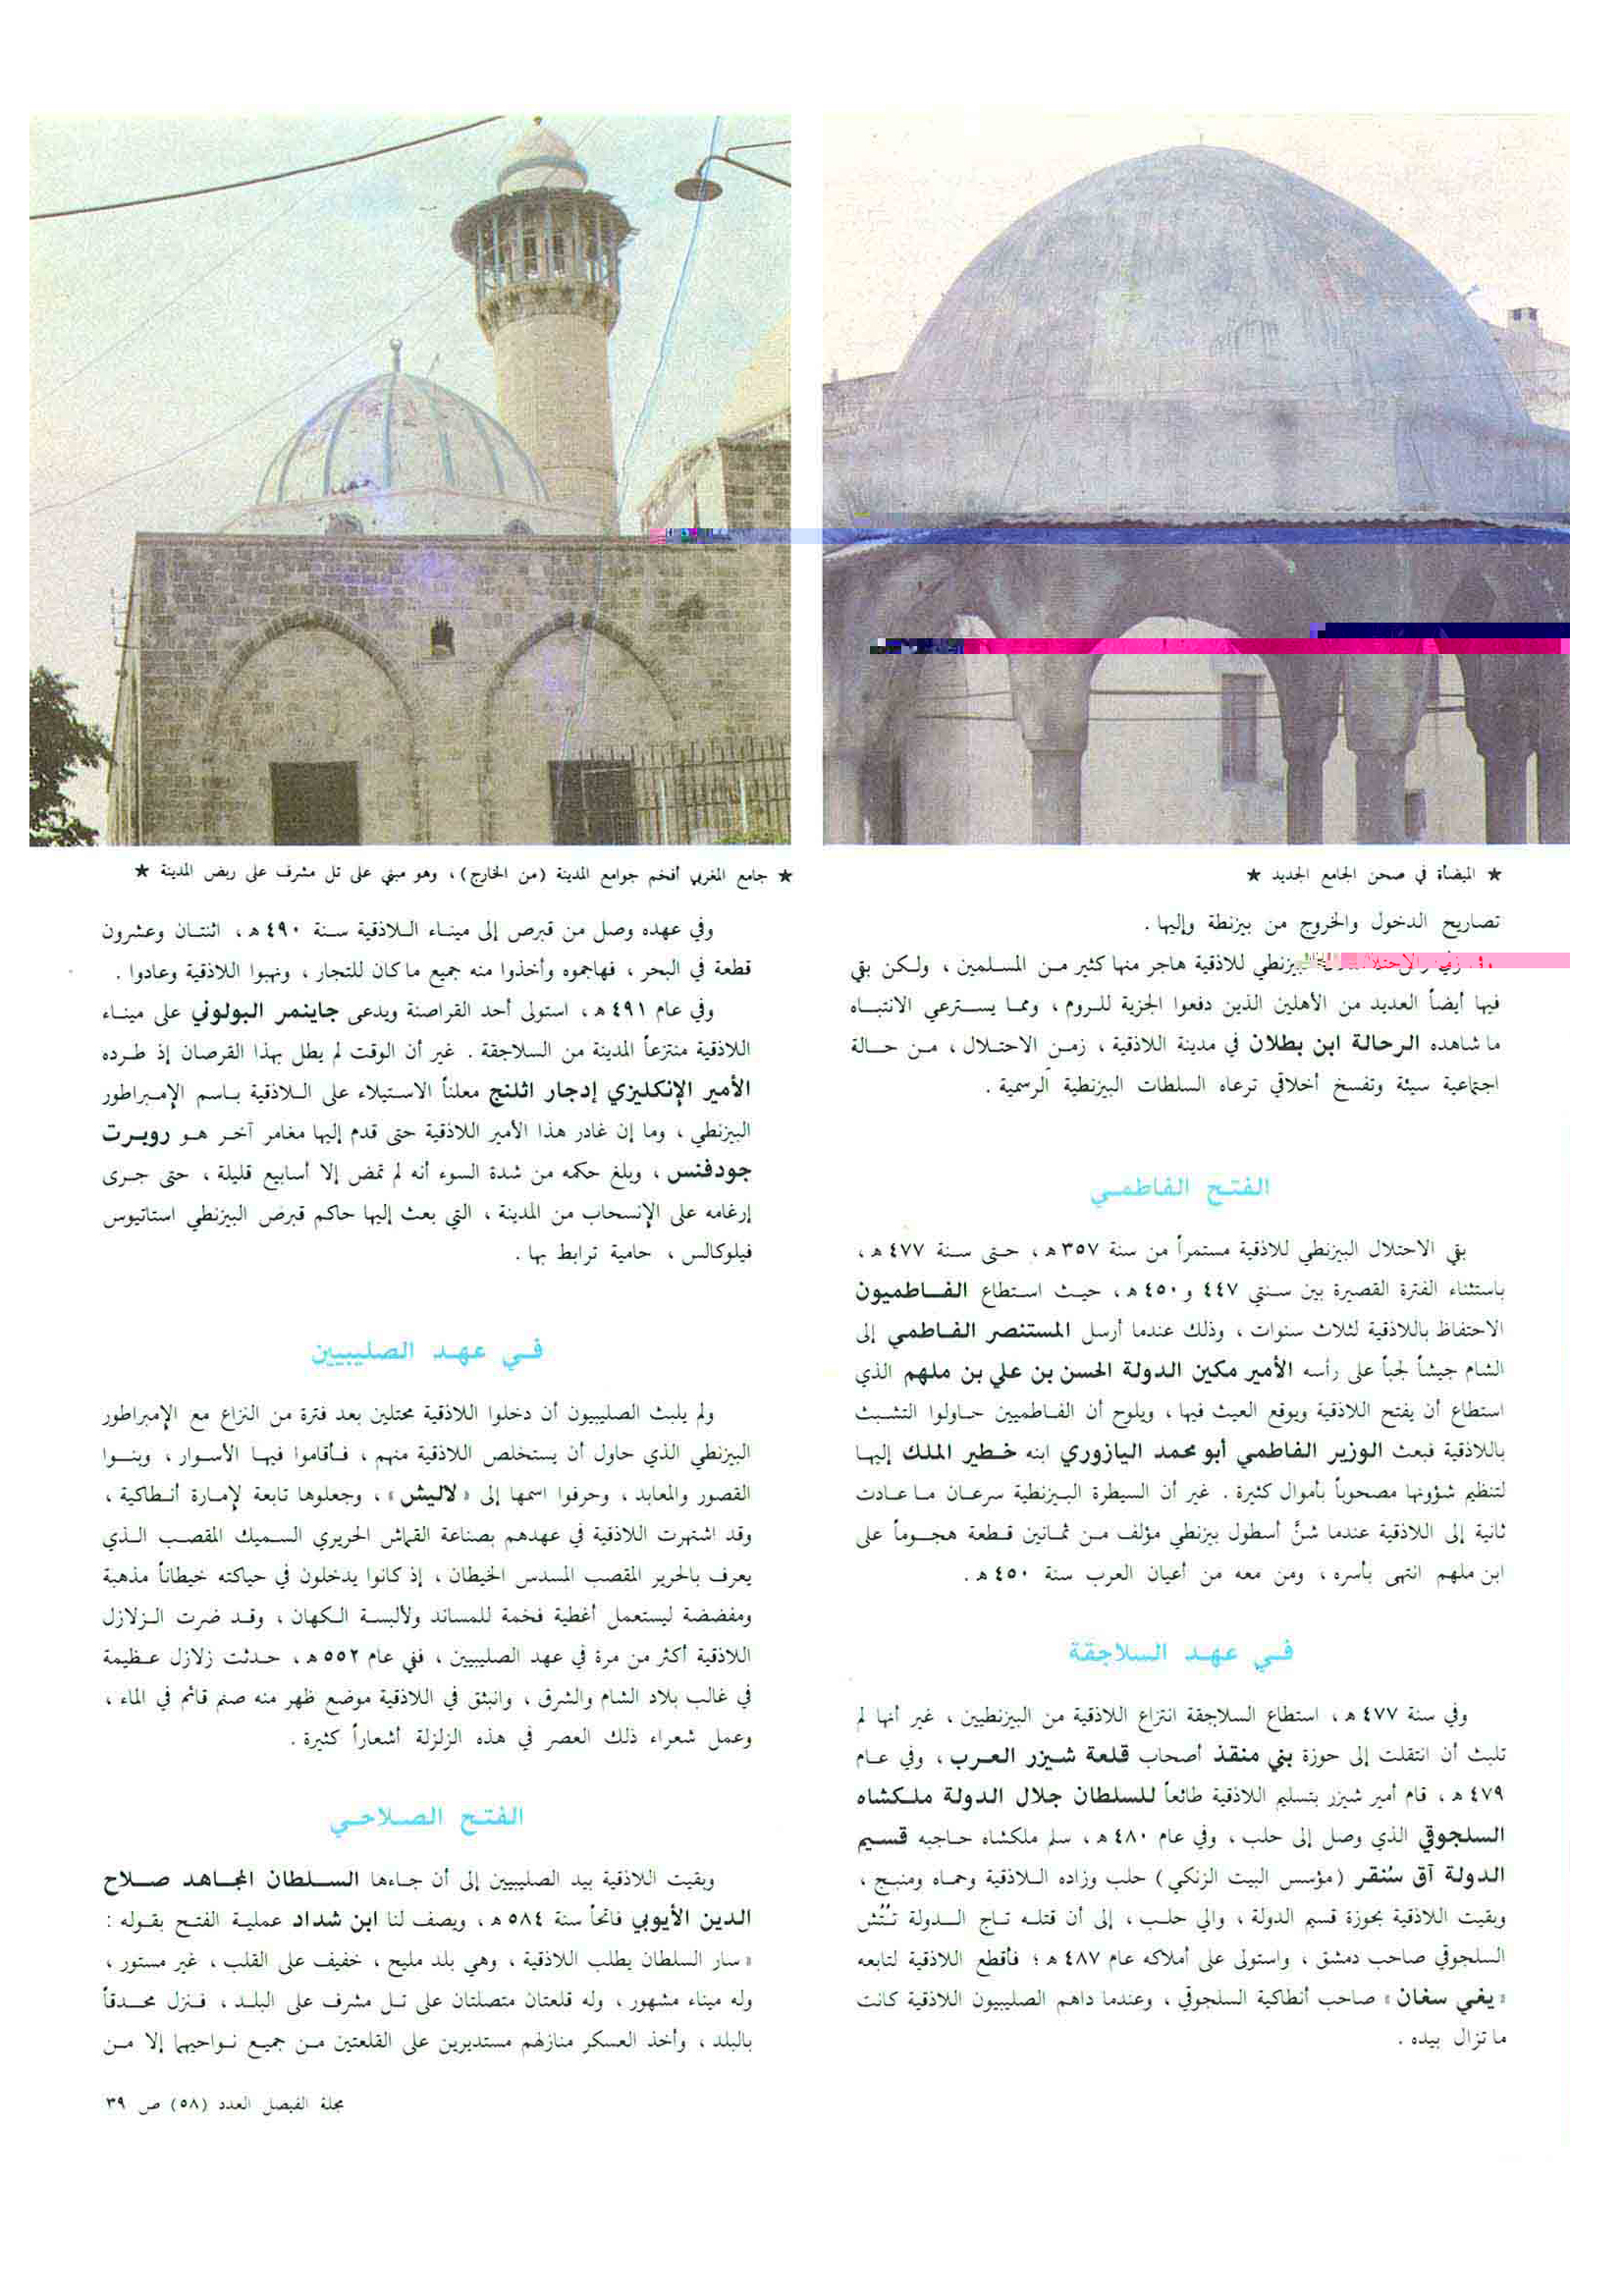 ★ الميضأة في صحن الجامع الجديد ★
تصاريح الدخول والخروج من بيزنطة وإليها .
البيزنطي للاذقية هاجر منها كثير من المسلمين ، ولكن بقي
فيها أيضاً العديد من الأهلين الذين دفعوا الجزية للروم ، ومما يسترعي الانتباه
ما شاهده الرحالة ابن بطلان في مدينة اللاذقية ، زمن الاحتلال ، من حالة
اجتماعية سيئة وتفسخ أخلاقي ترعاه السلطات البيزنطية الرسمية .
الفتح الفاطمي
بقي الاحتلال البيزنطي للاذقية مستمراً من سنة ٣٥٧ هـ ، حتى سنة ٤٧٧ هـ ،
باستثناء الفترة القصيرة بين سنتي ٤٤٧ و ٤٥٠ هـ ، حيث استطاع الفاطميون
الاحتفاظ باللاذقية لثلاث سنوات ، وذلك عندما أرسل المستنصر الفاطمي إلى
الشام جيشاً لجباً على رأسه الأمير مكين الدولة الحسن بن علي بن ملهم الذي
استطاع أن يفتح اللاذقية ويوقع العيث فيها ، ويلوح أن الفاطميين حاولوا التشبث
باللاذقية فبعث الوزير الفاطمي أبو محمد اليازوري ابنه خطير الملك إليها
لتنظيم شؤونها مصحوباً بأموال كثيرة . غير أن السيطرة البيزنطية سرعان ما عادت
ثانية إلى اللاذقية عندما شنَّ أسطول بيزنطي مؤلف من ثمانين قطعة هجوماً على
ابن ملهم انتهى بأسره ، ومن معه من أعيان العرب سنة ٤٥٠ هـ .
في عهد السلاجقة
وفي سنة ٤٧٧ هـ ، استطاع السلاجقة انتزاع اللاذقية من البيزنطيين ، غير أنها لم
تلبث أن انتقلت إلى حوزة بني منقذ أصحاب قلعة شيزر العرب ، وفي عام
٤٧٩ هـ ، قام أمير شيزر بتسليم اللاذقية طائعاً للسلطان جلال الدولة ملكشاه
السلجوقي الذي وصل إلى حلب ، وفي عام ٤٨٠ هـ ، سلم ملكشاه حاجبه قسيم
الدولة آق سُنقر (مؤسس البيت الزنكي) حلب وزاده اللاذقية وحماه ومنبج ،
وبقيت اللاذقية بحوزة قسيم الدولة ، والي حلب ، إلى أن قتله تاج الدولة تُتُش
السلجوقي صاحب دمشق ، واستولى على أملاكه عام ٤٨٧ هـ ؛ فأقطع اللاذقية لتابعه
« يغي سغان » صاحب أنطاكية السلجوقي ، وعندما داهم الصليبيون اللاذقية كانت
ما تزال بيده .
★ جامع المغربي أفخم جوامع المدينة (من الخارج) ، وهو مبني على تل مشرف على ربض المدينة ★
وفي عهده وصل من قبرص إلى ميناء اللاذقية سنة ٤٩٠ هـ ، اثنتان وعشرون
قطعة في البحر ، فهاجموه وأخذوا منه جميع ما كان للتجار ، ونهبوا اللاذقية وعادوا .
وفي عام ٤٩١ هـ ، استولى أحد القراصنة ويدعى جاينمر البولوني على ميناء
اللاذقية منتزعاً المدينة من السلاجقة . غير أن الوقت لم يطل بهذا القرصان إذ طرده
الأمير الإنكليزي إدجار اثلنج معلناً الاستيلاء على اللاذقية باسم الإمبراطور
البيزنطي ، وما إن غادر هذا الأمير اللاذقية حتى قدم إليها مغامر آخر هو روبرت
جودفنس ، وبلغ حكمه من شدة السوء أنه لم تمض إلا أسابيع قليلة ، حتى جرى
إرغامه على الإنسحاب من المدينة ، التي بعث إليها حاكم قبرص البيزنطي استاتيوس
فيلوكالس ، حامية ترابط بها .
في عهد الصليبيين
ولم يلبث الصليبيون أن دخلوا اللاذقية محتلين بعد فترة من النزاع مع الإمبراطور
البيزنطي الذي حاول أن يستخلص اللاذقية منهم ، فأقاموا فيها الأسوار ، وبنوا
القصور والمعابد ، وحرفوا اسمها إلى « لاليش » ، وجعلوها تابعة لإمارة أنطاكية ،
وقد اشتهرت اللاذقية في عهدهم بصناعة القماش الحريري السميك المقصب الذي
يعرف بالحرير المقصب المسدس الخيطان ، إذ كانوا يدخلون في حياكته خيطاناً مذهبة
ومفضضة ليستعمل أغطية فخمة للمساند ولألبسة الكهان ، وقد ضرت الزلازل
اللاذقية أكثر من مرة في عهد الصليبيين ، ففي عام ٥٥٢ هـ ، حدثت زلازل عظيمة
في غالب بلاد الشام والشرق ، وانبثق في اللاذقية موضع ظهر منه صنم قائم في الماء ،
وعمل شعراء ذلك العصر في هذه الزلزلة أشعاراً كثيرة .
الفتح الصلاحي
وبقيت اللاذقية بيد الصليبيين إلى أن جاءها السلطان المجاهد صلاح
الدين الأيوبي فاتحاً سنة ٥٨٤ هـ ، ويصف لنا ابن شداد عملية الفتح بقوله :
« سار السلطان يطلب اللاذقية ، وهي بلد مليح ، خفيف على القلب ، غير مستور ،
وله ميناء مشهور ، وله قلعتان متصلتان على تل مشرف على البلد ، فنزل محدقاً
بالبلد ، وأخذ العسكر منازلهم مستديرين على القلعتين من جميع نواحيها إلا من
مجلة الفيصل العدد (٥٨) ص ٣٩